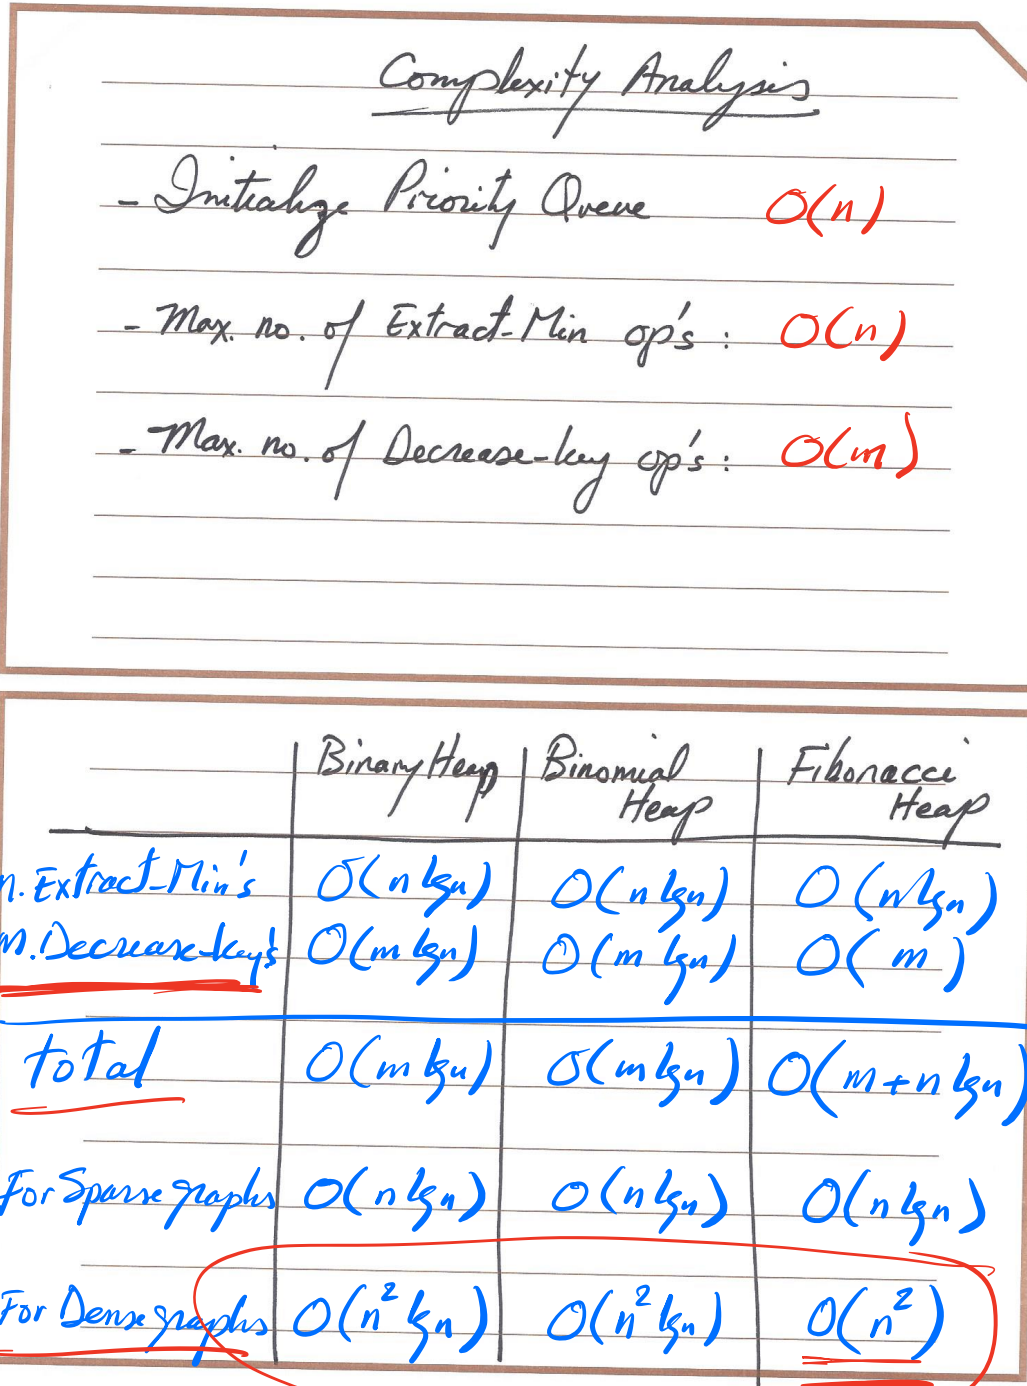 Complexity Analysis
- Initialize Priority Queue O(n)
- Max. no. of Extract-Min op's : O(n)
- Max. no. of Decrease-key op's : O(m)
Binary Heap Binomial Heap Fibonacci Heap
n. Extract-Min's O(n lgn) O(n lgn) O(n lgn)
m. Decrease-key's O(m lgn) O(m lgn) O(m)
total O(m lgn) O(m lgn) O(m+n lgn)
For Sparse graphs O(n lgn) O(n lgn) O(n lgn)
For Dense graphs O(n² lgn) O(n² lgn) O(n²)